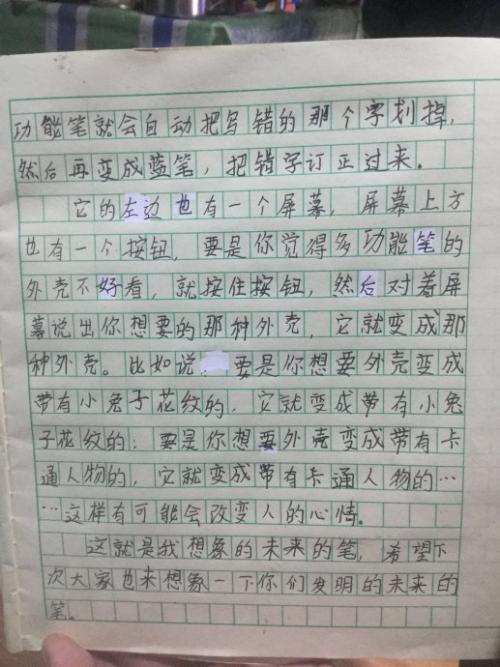 功能笔就会自动把写错的那个字划掉，
然后再变成蓝笔，把错字订正过来。
它的左边也有一个屏幕，屏幕上方
也有一个按钮，要是你觉得多功能笔的
外壳不好看，就按住按钮，然后对着屏
幕说出你想要的那种外壳，它就变成那
种外壳。比如说，要是你想要外壳变成
带有小兔子花纹的，它就变成带有小兔
子花纹的；要是你想要外壳变成带有卡
通人物的，它就变成带有卡通人物的…
…这样有可能会改变人的心情。
这就是我想象的未来的笔，希望下
次大家也来想象一下你们发明的未来的
笔。